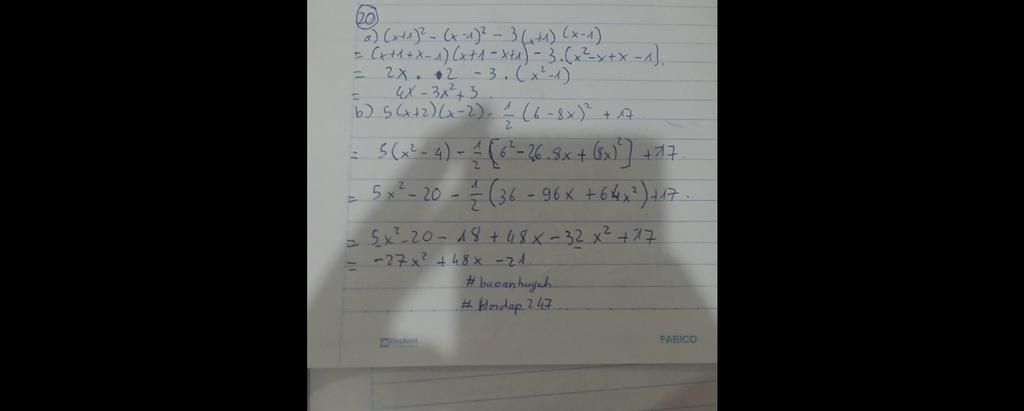 20
a) (x+1)² - (x-1)² - 3(x+1)(x-1)
= (x+1+x-1)(x+1-x+1) - 3.(x²-x+x-1).
= 2x . 2 - 3.(x²-1)
= 4x - 3x² + 3.
b) 5(x+2)(x-2) - 1/2 (6-8x)² + 17
= 5(x²-4) - 1/2 [6² - 2.6.8x + (8x)²] + 17
= 5x² - 20 - 1/2 (36 - 96x + 64x²) + 17.
= 5x² - 20 - 18 + 48x - 32x² + 17
= -27x² + 48x - 21.
#baoanhuynh
#hoidap247
Elephant
FABICO